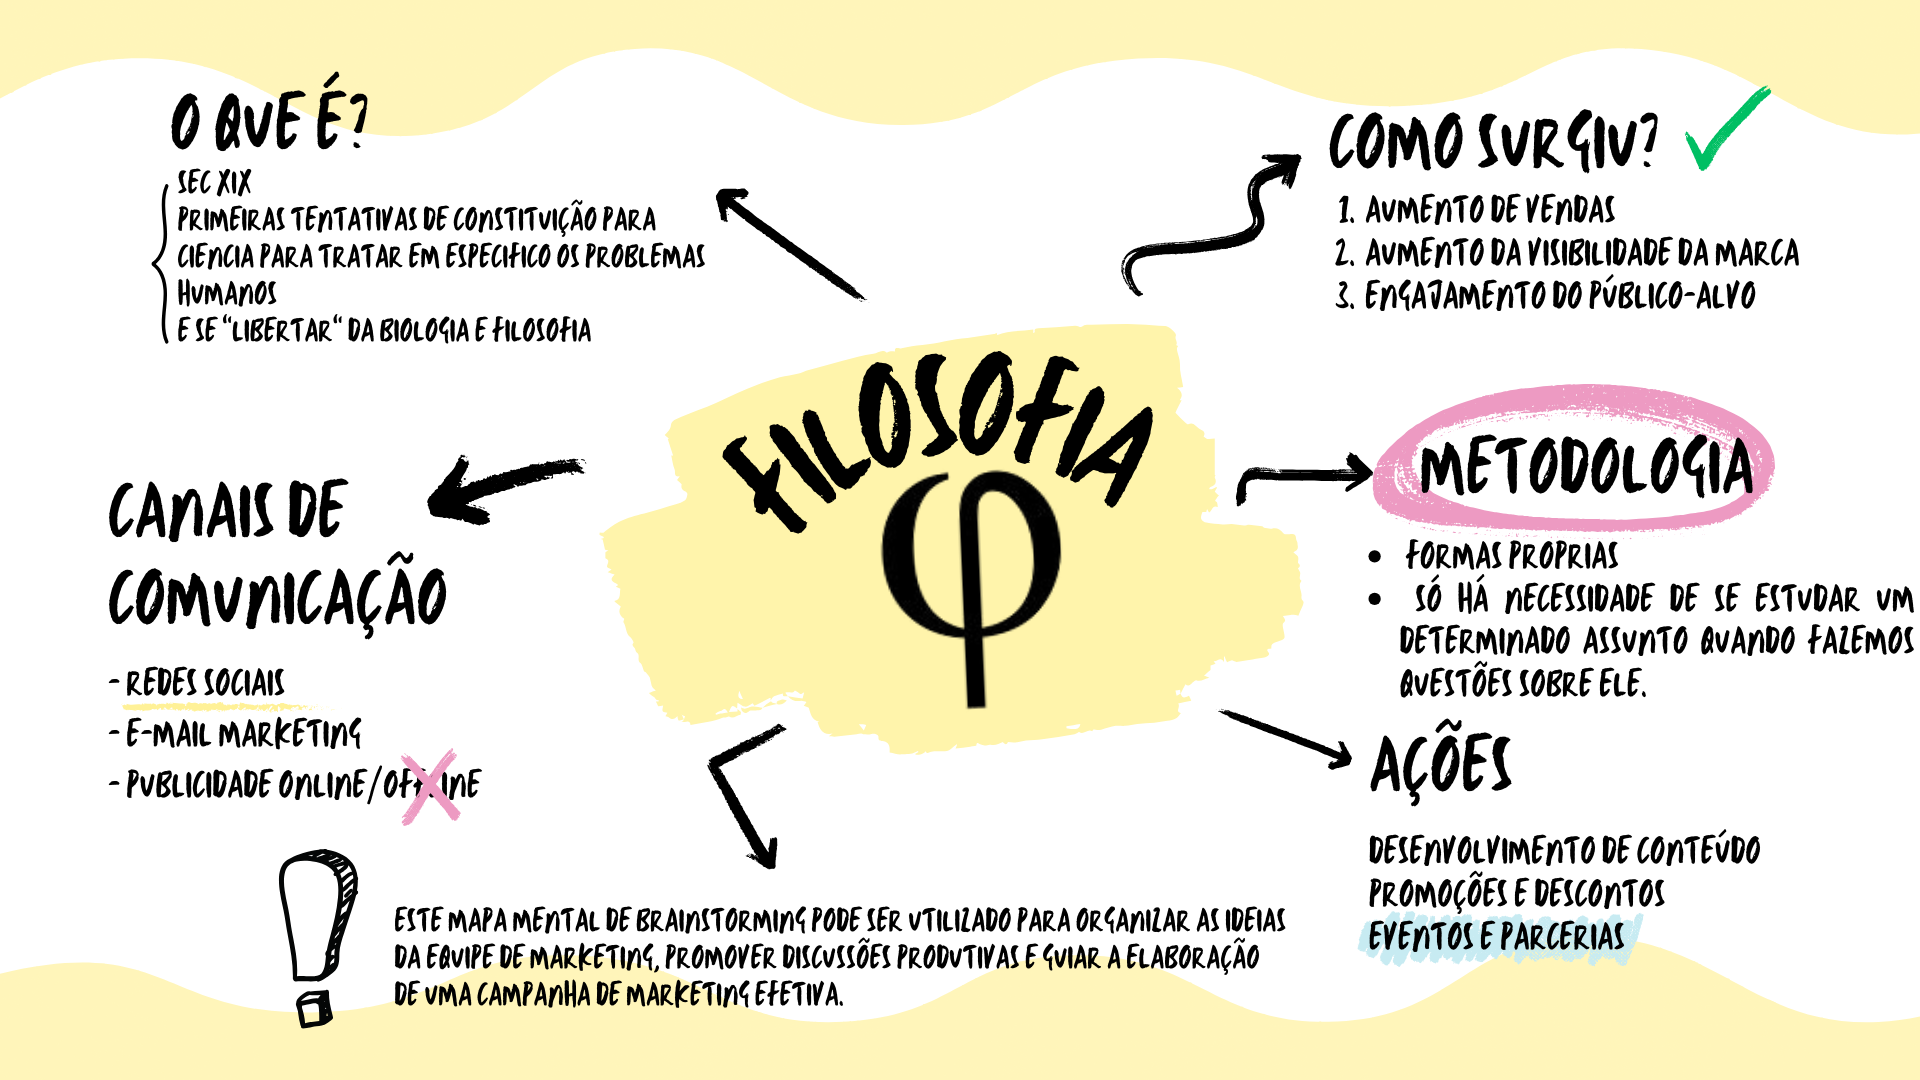 O QUE É?
SEC XIX
PRIMEIRAS TENTATIVAS DE CONSTITUIÇÃO PARA
CIENCIA PARA TRATAR EM ESPECIFICO OS PROBLEMAS
HUMANOS
E SE "LIBERTAR" DA BIOLOGIA E FILOSOFIA
COMO SURGIU?
1. AUMENTO DE VENDAS
2. AUMENTO DA VISIBILIDADE DA MARCA
3. ENGAJAMENTO DO PÚBLICO-ALVO
FILOSOFIA
φ
METODOLOGIA
• FORMAS PROPRIAS
• SÓ HÁ NECESSIDADE DE SE ESTUDAR UM
DETERMINADO ASSUNTO QUANDO FAZEMOS
QUESTÕES SOBRE ELE.
CANAIS DE
COMUNICAÇÃO
- REDES SOCIAIS
- E-MAIL MARKETING
- PUBLICIDADE ONLINE/OFFLINE
AÇÕES
DESENVOLVIMENTO DE CONTEÚDO
PROMOÇÕES E DESCONTOS
EVENTOS E PARCERIAS
ESTE MAPA MENTAL DE BRAINSTORMING PODE SER UTILIZADO PARA ORGANIZAR AS IDEIAS
DA EQUIPE DE MARKETING, PROMOVER DISCUSSÕES PRODUTIVAS E GUIAR A ELABORAÇÃO
DE UMA CAMPANHA DE MARKETING EFETIVA.